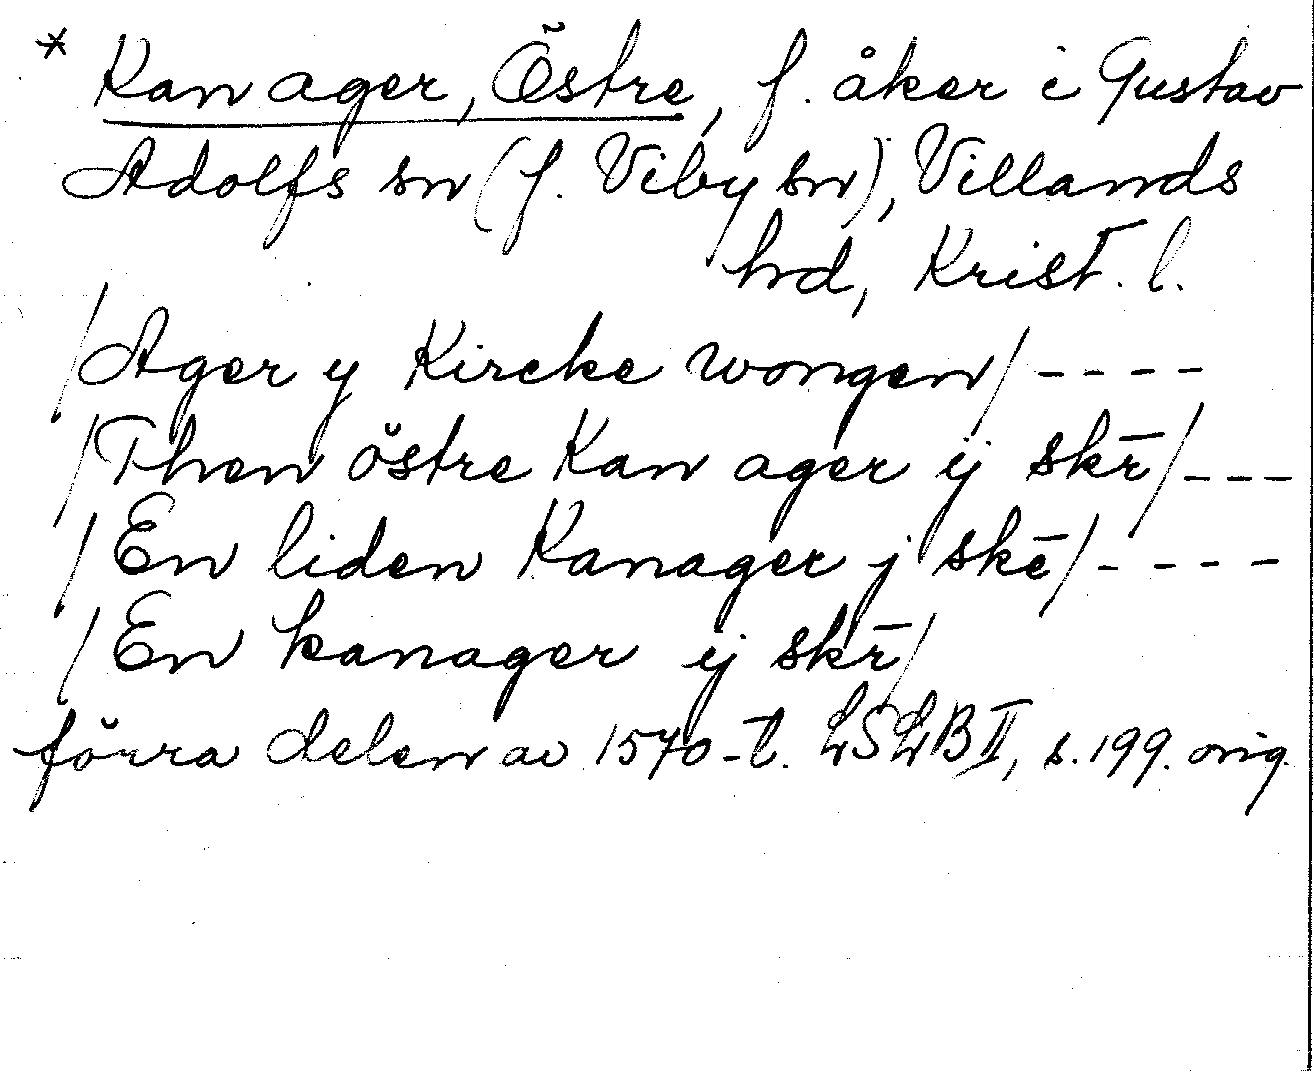 * Kan ager, Östre, f. åker i Gustav
Adolfs sn (f. Viby sn), Villands
hd, Krist. l.
/Ager y Kircke wongen/ - - - -
/Then östre Kan ager ÿ skr̄/ - - -
/En liden Kanager j skē/ - - - -
/En kanager ÿ skr̄/
förra delen av 1570-t. LSLB II, s. 199. orig.